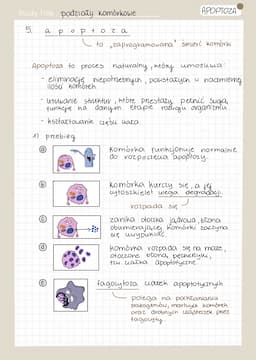 podziały komórkowe
APOPTOZA
5. apoptoza
to "zaprogramowana" śmierć komórki
Apoptoza to proces naturalny, który umożliwia:
- eliminację niepotrzebnych, powstałych w nadmiernej
ilości komórek
- usuwanie struktur, które przestały pełnić swoją
funkcję na danym etapie rozwoju organizmu
- kształtowanie ciała
1) przebieg
a) komórka funkcjonuje normalnie
do rozpoczęcia apoptozy.
b) komórka kurczy się, a jej
cytoszkielet ulega degradacji.
rozpada się
c) zanika otoczka jądrowa, błona
obumierającej komórki zaczyna
się uwypuklać.
d) komórka rozpada się na małe,
otoczone błoną, pęcherzyki,
tzw. ciałka apoptotyczne.
e) fagocytoza ciałek apoptotycznych
polega na pochłanianiu
patogenów, martwych komórek
oraz drobnych cząsteczek przez
fagocyty.